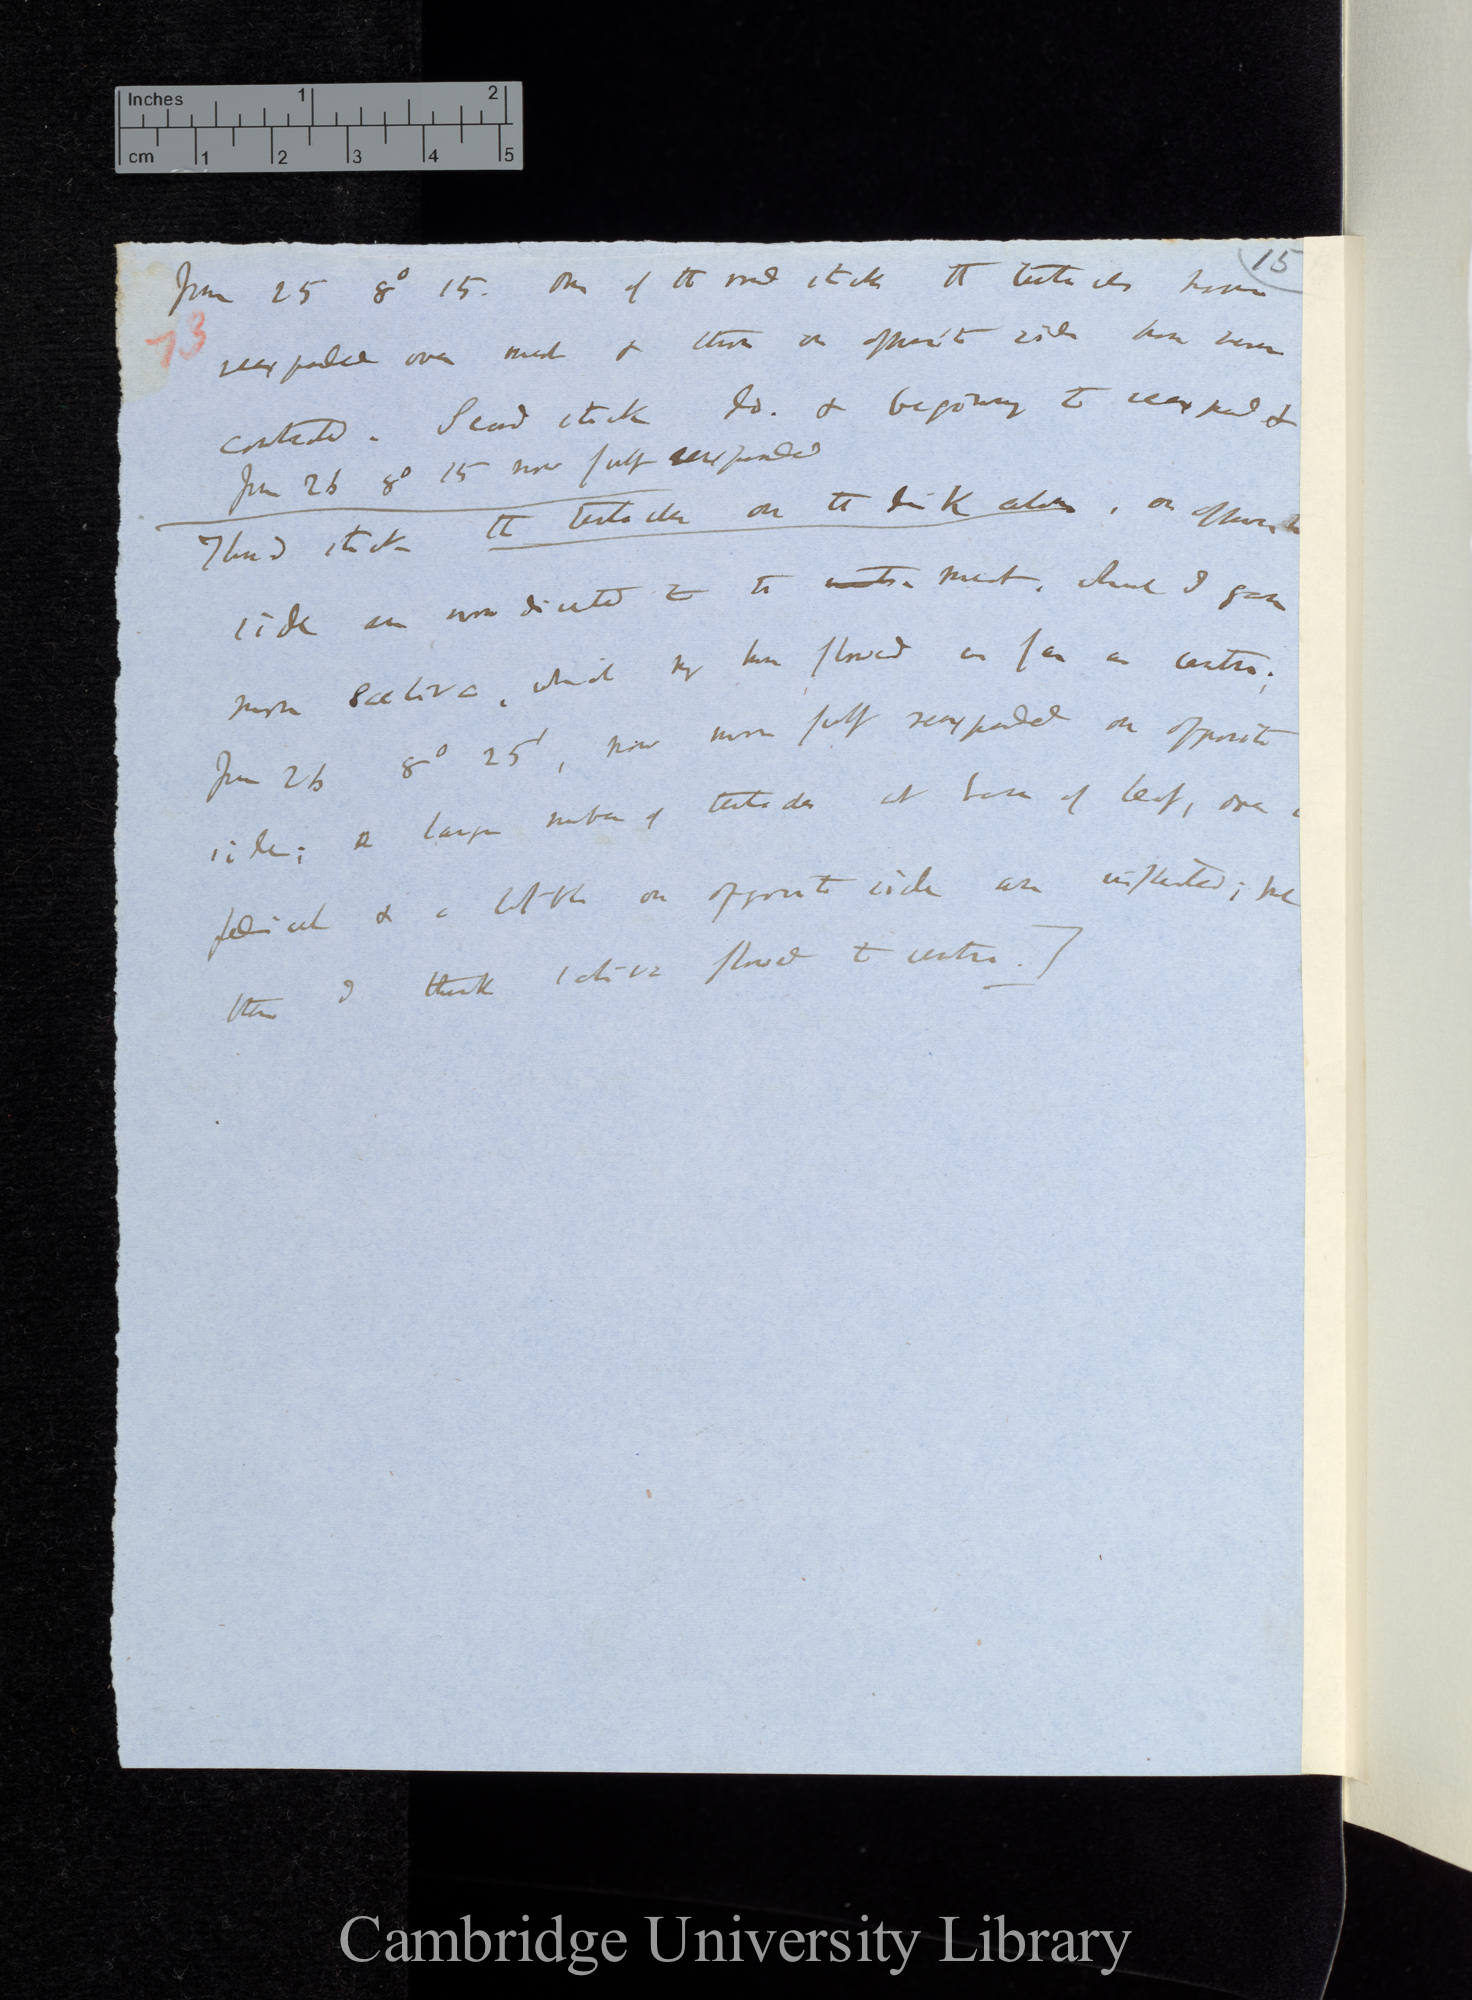 Inches 1 2
cm 1 2 3 4 5
15
June 25 8° 15. One of the med sticks the tentacles have
73
reexpanded over meat & those on opposite side have never
contracted. Second stick do. & beginning to reexpand
June 26 8° 15 now fully reexpanded
Third stick the tentacles on the disk alone, on opposite
side are now directed to meat. when I gave
more saliva, which may have flowed as far as centre;
June 26 8° 25', now more fully reexpanded on opposite
side; a large number of tentacles at base of leaf, over
pedicel & a little on opposite side are inflected;
then I think saliva flowed to centre.]
Cambridge University Library